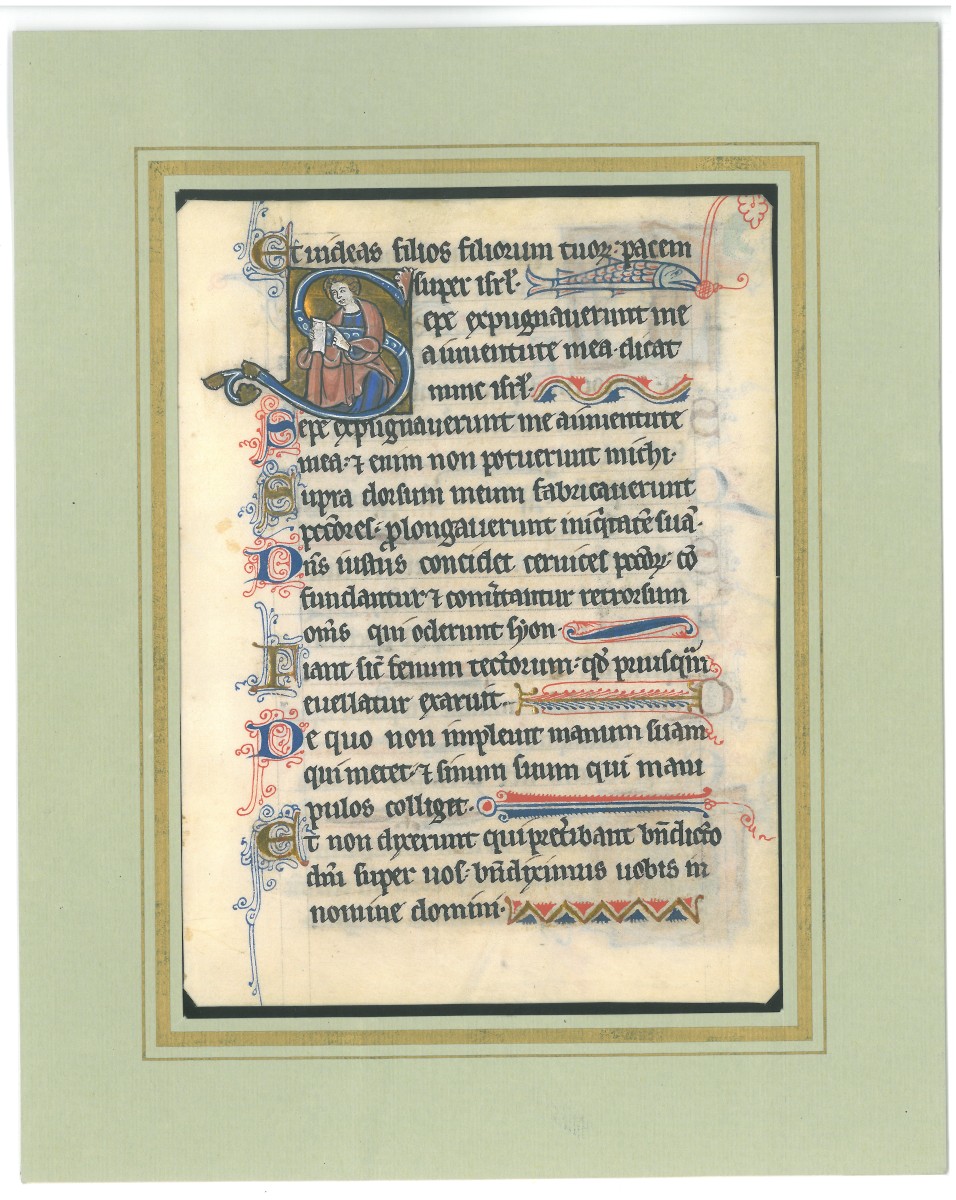 Et uideas filios filiorum tuoꝝ: pacem
super isrł·
Sepe expugnauerunt me
a iuuentute mea· dicat
nunc isrł·
Sepe expugnauerunt me a iuuentute
mea: ⁊ enim non potuerunt michi·
Supra dorsum meum fabricauerunt
pcc̄ores· ꝓlongauerunt iniq̇tatē suā·
Dn̄s iustus concidet ceruices pcc̄oꝝ: cō
fundantur ⁊ conũtantur retrorsum
om̄s qui oderunt syon·
Fiant sic̄ fenum tectorum· qd̄ priusq̄m
euellatur exaruit·
De quo non impleuit manum suam
qui metet· ⁊ sinum suum qui mani
pulos colliget·
Et non dixerunt qui pret̾ibant bn̄dictō
dn̄i super uos· bn̄diximus uobis in
nomine domini·